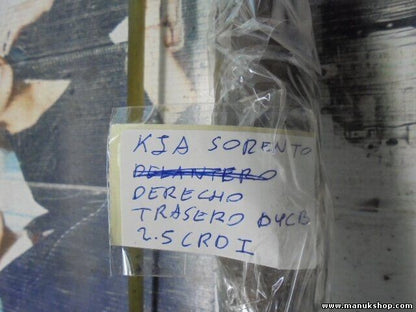 KIA SORENTO
DELANTERO
DERECHO
TRASERO D4CB
2.5 CRDI
www.manukshop.com